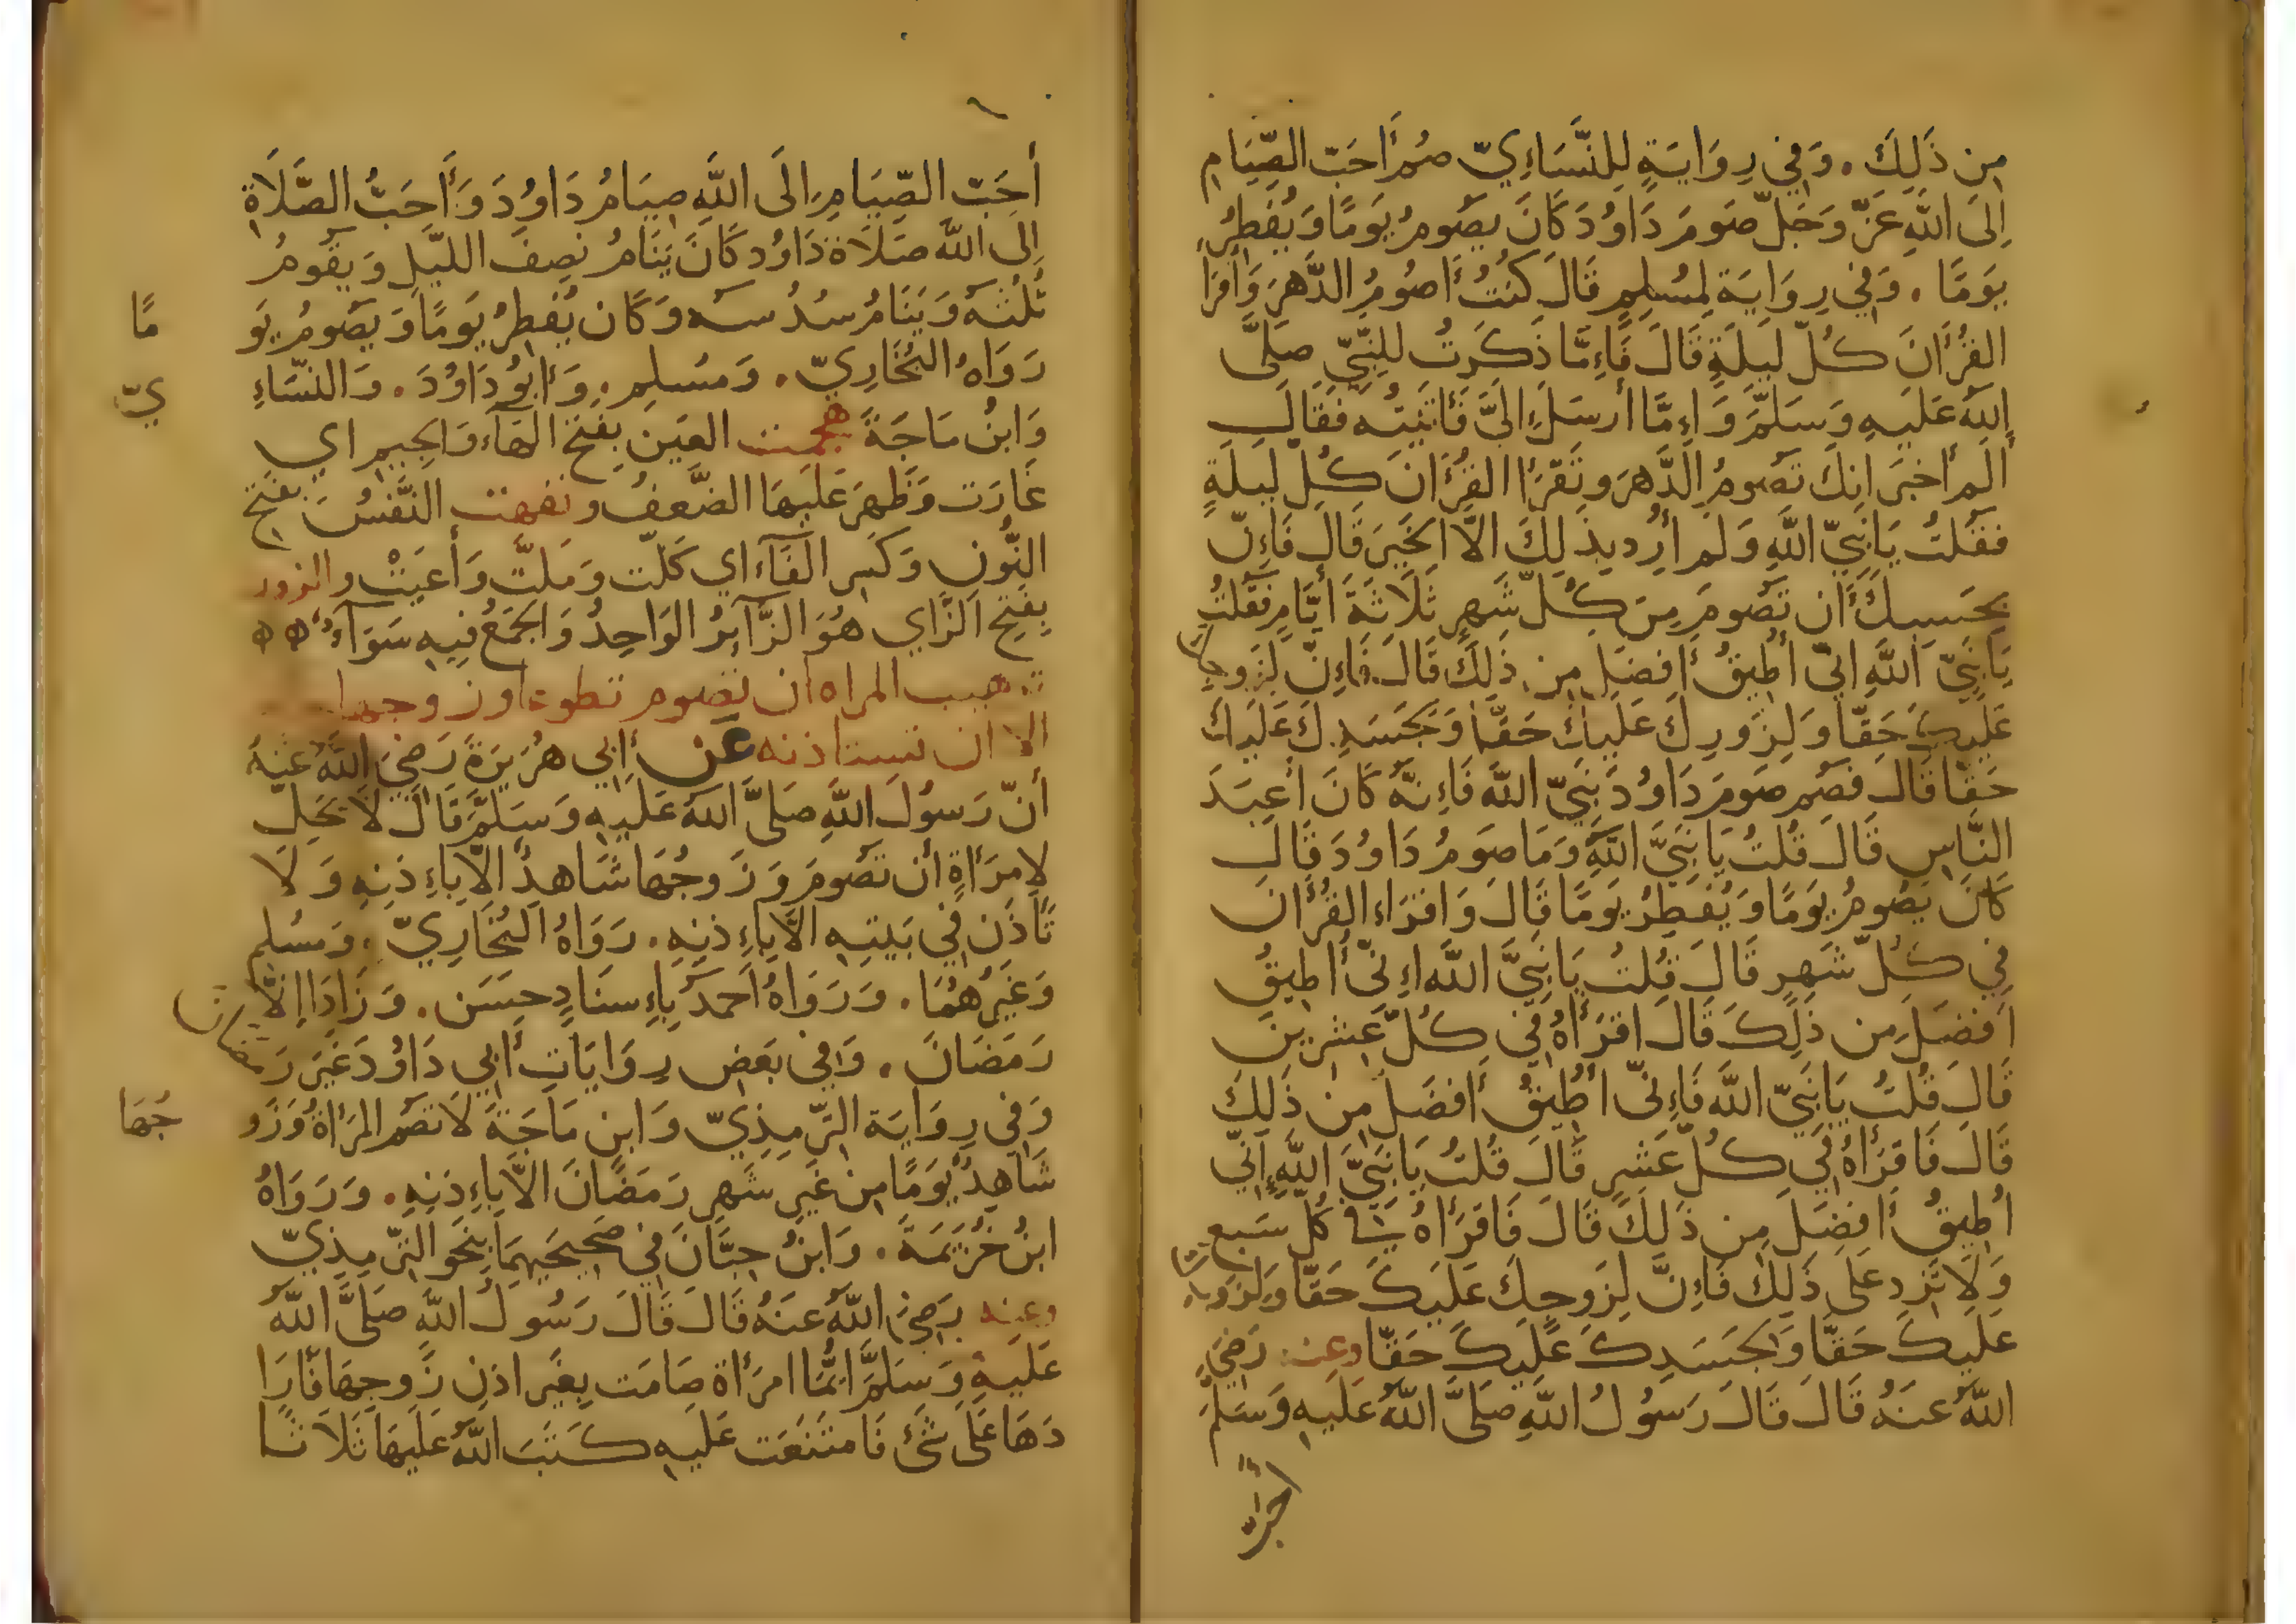 مِن ذَلِكَ. وَفِي رِوَايَةٍ لِلنَّسَاءِيّ صُم أَحَبّ الصِّيَامِ
اِلَى اللَّهِ عَزّ وَجَلّ صَومَ دَاوُدَ كَانَ يَصُومُ يَومًا وَيُفطِرُ
يَومًا. وَفِي رِوَايَة لِمُسلِمٍ قَالَ كُنتُ أَصُومُ الدَّهرَ وَأَقرَأ
القُرْأَنَ كُلّ لَيلَةٍ قَالَ فَاِمَّا ذَكَرتُ لِلنَّبِيّ صَلَّى
اللَّهُ عَلَيهِ وَسَلَّمَ وَاِمَّا أَرسَلَ إِلَيَّ فَأَتَيتُه فَقَالَ
أَلَم أُخبَر اِنَّكَ تَصُومُ الدَّهرَ وتَقرَأ القُرْأَنَ كُلّ لَيلَةٍ
فَقُلتُ يَا نَبِيّ اللَّهِ وَلَم أُرِد بِذَلِكَ اِلَّا الخَيرَ قَالَ فَإِنّ
بِحَسبِكَ أَن تَصُومَ مِن كُلّ شَهرٍ ثَلَاثَةَ أَيَّامٍ فَقُلتُ
يَا نَبِيّ اللَّهِ اِنّي أُطِيقُ أَفضَلَ مِن ذَلِكَ قَالَ فَاِنّ لِزَوجِكَ
عَلَيكَ حَقّا وَلِزَورِكَ عَلَيكَ حَقّا وَلِجَسَدِكَ عَلَيكَ
حَقّا قَالَ فَصُم صَومَ دَاوُدَ نَبِيّ اللَّهِ فَاِنَّهُ كَانَ أَعبَدَ
النَّاسِ قَالَ قُلتُ يَا نَبِيَّ اللَّهِ وَمَا صَومُ دَاوُدَ قَالَ
كَانَ يَصُومُ يَومًا وَيُفطِرُ يَومًا قَالَ وَاقرَاء القُرْأَنَ
فِي كُلّ شَهرٍ قَالَ قُلتُ يَا نَبِيَّ اللَّه اِنّي أُطِيقُ
أَفضَلَ مِن ذَلِكَ قَالَ اقرَأهُ فِي كُلّ عَشرِينَ
قَالَ قُلتُ يَا نَبِيّ اللَّه فَاِنّي أُطِيقُ أَفضَلَ مِن ذَلِكَ
قَالَ فَاقرَأهُ فِي كُلّ عَشرٍ قَالَ قُلتُ يَا نَبِيَّ اللَّهِ إِنّي
أُطِيقُ أَفضَلَ مِن ذَلِكَ قَالَ فَاقرَأهُ فِي كُلّ سَبع
وَلَا تَزِد عَلَى ذَلِكَ فَاِنَّ لِزَوجِكَ عَلَيكَ حَقّا وَلِزَورِكَ
عَلَيكَ حَقّا وَلِجَسَدِكَ عَلَيكَ حَقّا وعنه رَضِيَ
اللَّهُ عَنهُ قَالَ قَالَ رَسُولُ اللَّهِ صَلَّى اللَّهُ عَلَيهِ وَسَلَّمَ
أَحَبّ
أَحَبّ الصِّيَامِ اِلَى اللَّهِ صِيَامُ دَاوُدَ وَأَحَبُّ الصَّلَاةِ
اِلَى اللَّه صَلَاة دَاوُد كَانَ يَنَامُ نِصفَ اللَّيلِ وَيَقُومُ
ثُلُثَهُ وَيَنَامُ سُدُسَه وَكَانَ يُفطِرُ يَومًا وَيَصُومُ يَو
مًا
رَوَاهُ البُخَارِيّ. وَمُسلِم. وَأَبُو دَاوُدَ. وَالنَّسَاءِ
يّ
وَابنُ مَاجَةَ هجمت العَين بِفَتحِ الهَآءِ وَالجِيم اي
غَارَت وَظَهَرَ عَلَيهَا الضَّعفُ ونفهت النَّفسُ بفَتحِ
النُّونِ وَكَسرِ الفَآءِ اي كَلّت وَمَلّت وَأَعيَتْ والزور
بِفَتحِ الزَّاي هُوَ الزَّآئِرُ الوَاحِدُ وَالجَمعُ فِيهِ سَوَآءٌ ه ه
ترهيب المراه ان تصوم تطوعا وزوجها
الا ان تستاذنه عَن أَبِي هُرَيرَةَ رَضِيَ اللَّهُ عَنهُ
أَنّ رَسُولَ اللَّهِ صَلَّى اللَّهُ عَلَيهِ وَسَلَّمَ قَالَ لَا يَحِلّ
لِامرَأَةٍ أَن تَصُومَ وَزَوجُهَا شَاهِدٌ اِلَّا بِاِذنِهِ وَلَا
تَأذَن فِي بَيتِهِ اِلَّا بِاِذنِهِ. رَوَاهُ البُخَارِيّ. وَمُسلِم
وَغَيرُهُمَا. وَرَوَاهُ أَحمَد بِاِسنَادٍ حَسَن. وَزَادَ اِلَّا
رَمَضَانَ. وَفِي بَعضِ رِوَايَاتِ أَبِي دَاوُدَ غَيرَ رَمَضَانَ
وَفِي رِوَايَة التِّرمِذِيّ وَابنِ مَاجَةَ لَا تَصُم المَرأَةُ وَزَو
جُهَا
شَاهِدٌ يَومًا مِن غَيرِ شَهرِ رَمَضَانَ اِلَّا بِاِذنِهِ. وَرَوَاهُ
ابنُ خُزَيمَةَ. وَابنُ حِبَّانَ فِي صَحِيحَيهِمَا بِنَحوِ التِّرمِذِيّ
وعنه رَضِيَ اللَّهُ عَنهُ قَالَ قَالَ رَسُولُ اللَّهِ صَلَّى اللَّهُ
عَلَيهِ وَسَلَّمَ أَيُّمَا امرَأَة صَامَت بِغَيرِ اذنِ زَوجِهَا فَأَرَا
دَهَا عَلَى شَئ فَامتَنَعَت عَلَيهِ كَتَبَ اللَّهُ عَلَيهَا ثَلَاثًا